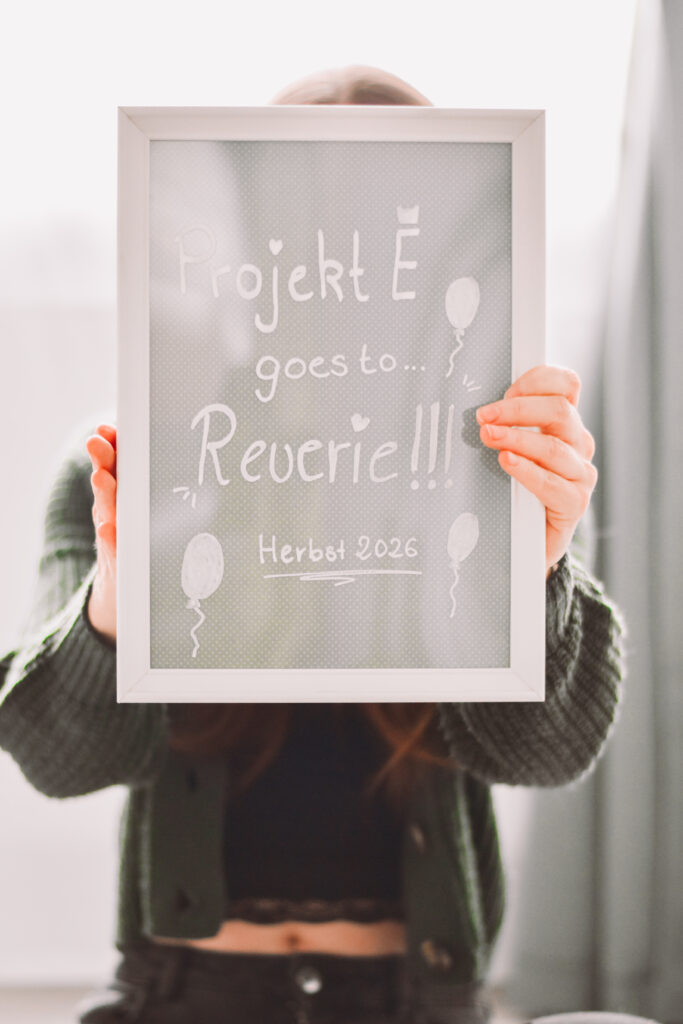 Projekt E
goes to...
Reverie!!!
Herbst 2026